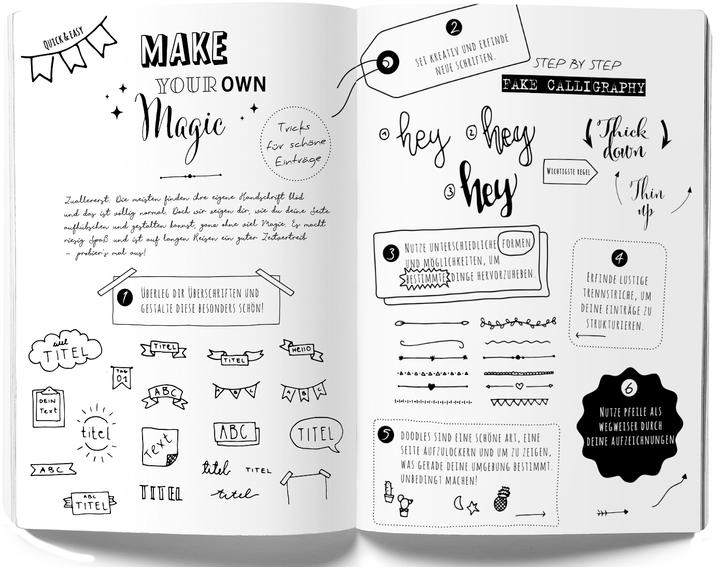 QUICK & EASY
MAKE
YOUR OWN
Magic
Tricks
für schöne
Einträge
Zuallererst: Die meisten finden ihre eigene Handschrift blöd
und das ist völlig normal. Doch wir zeigen dir, wie du deine Seite
aufhübschen und gestalten kannst, ganz ohne viel Magie. Es macht
riesig Spaß und ist auf langen Reisen ein guter Zeitvertreib
– probier's mal aus!
1 ÜBERLEG DIR ÜBERSCHRIFTEN UND
GESTALTE DIESE BESONDERS SCHÖN!
TITEL
TITEL
TITEL
HELLO
TAG
01
DEIN
Text
ABC
ABC
titel
Text
ABC
TITEL
ABC
titel
TITEL
ABC
TITEL
TITEL
titel
2
SEI KREATIV UND ERFINDE
NEUE SCHRIFTEN.
STEP BY STEP
FAKE CALLIGRAPHY
1 hey
2 hey
3 hey
WICHTIGSTE REGEL
Thick
down
Thin
up
3 NUTZE UNTERSCHIEDLICHE FORMEN
UND MÖGLICHKEITEN, UM
BESTIMMTE DINGE HERVORZUHEBEN.
4
ERFINDE LUSTIGE
TRENNSTRICHE, UM
DEINE EINTRÄGE ZU
STRUKTURIEREN.
5 DOODLES SIND EINE SCHÖNE ART, EINE
SEITE AUFZULOCKERN UND UM ZU ZEIGEN,
WAS GERADE DEINE UMGEBUNG BESTIMMT.
UNBEDINGT MACHEN!
6
NUTZE PFEILE ALS
WEGWEISER DURCH
DEINE AUFZEICHNUNGEN